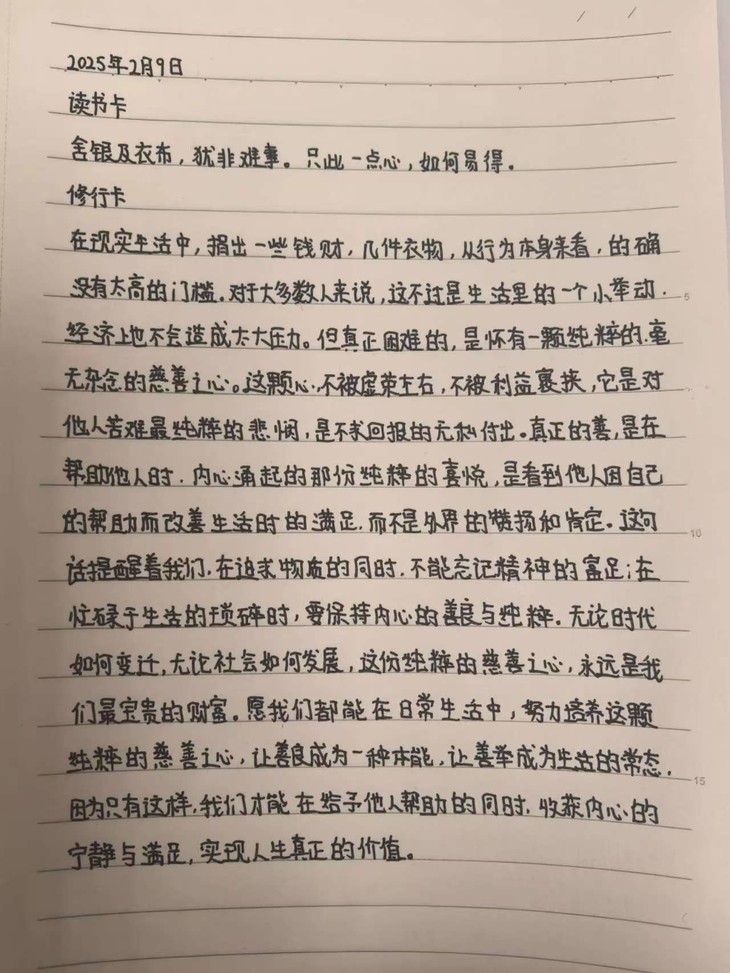 2025年2月9日
读书卡
舍银及衣布，犹非难事。只此一点心，如何易得。
修行卡
在现实生活中，捐出一些钱财，几件衣物，从行为本身来看，的确
没有太高的门槛。对于大多数人来说，这不过是生活里的一个小举动，
经济上也不会造成太大压力。但真正困难的，是怀有一颗纯粹的、毫
无杂念的慈善之心。这颗心，不被虚荣左右，不被利益裹挟，它是对
他人苦难最纯粹的悲悯，是不求回报的无私付出。真正的善，是在
帮助他人时，内心涌起的那份纯粹的喜悦，是看到他人因自己
的帮助而改善生活时的满足，而不是外界的赞扬和肯定。这句
话提醒着我们，在追求物质的同时，不能忘记精神的富足；在
忙碌于生活的琐碎时，要保持内心的善良与纯粹。无论时代
如何变迁，无论社会如何发展，这份纯粹的慈善之心，永远是我
们最宝贵的财富。愿我们都能在日常生活中，努力培养这颗
纯粹的慈善之心，让善良成为一种本能，让善举成为生活的常态，
因为只有这样，我们才能在给予他人帮助的同时，收获内心的
宁静与满足，实现人生真正的价值。
5
10
15